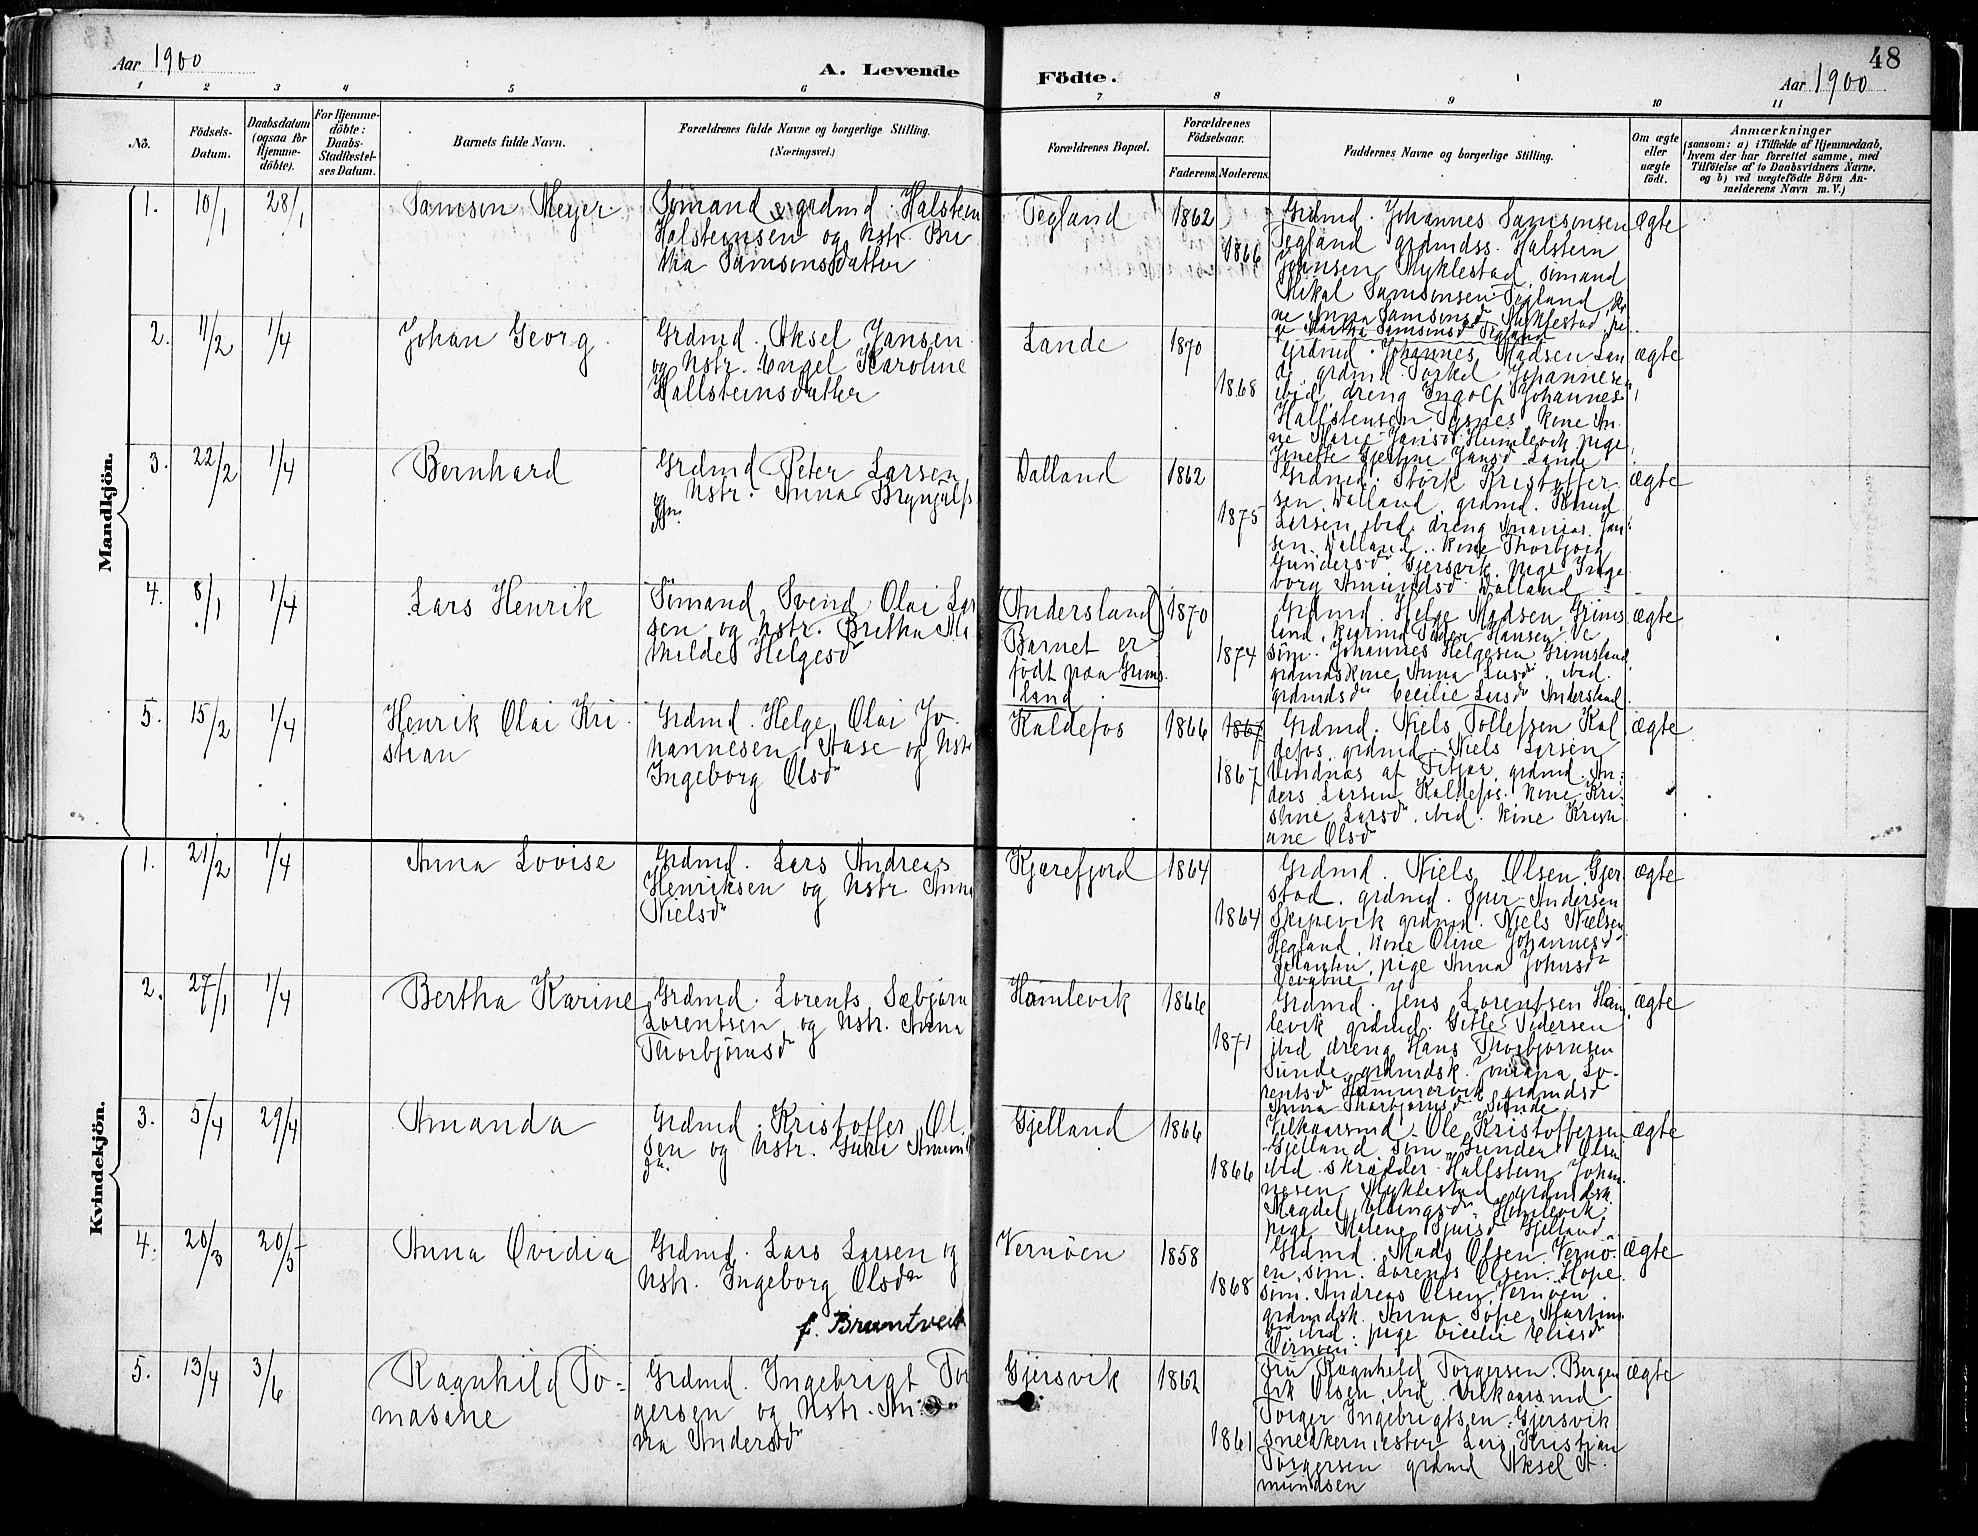 48
Aar 1900
A. Levende
Fødte.
Aar 1900
1
2
3
4
5
6
7
8
9
10
11
No.
Fødsels-
Datum.
Daabsdatum
(ogsaa for
Hjemme-
døbte).
For Hjemme-
døbte:
Daabs-
Stadfæstel-
ses Datum.
Barnets fulde Navn.
Forældrenes fulde Navne og borgerlige Stilling.
(Næringsvei.)
Forældrenes Bopæl.
Forældrenes
Fødselsaar.
Faderens.
Moderens.
Faddernes Navne og borgerlige Stilling.
Om ægte
eller
uægte
født.
Anmærkninger
(saasom: a) i Tilfælde af Hjemmedaab,
hvem der har forrettet samme, med
Tilføielse af to Daabsvidners Navne.
og b) ved uægtefødte Børn An-
melderens Navn m. V.)
Mandkjön.
1.
10/1
28/1
Samson Meyer
Sømand & grdmd. Halstein
Halsteinsen og Hstr. Bri
tha Samsonsdatter
Tegland
1862
1866
Grdmd. Johannes Samsonsen
Tegland grdmdss. Halstein
Johnsen Myklestad, sømand
Mikal Samsonsen Tegland, ko
ne Anna Samsonsd Myklestad, pi
ge Martha Samsonsd Tegland
ægte
2.
11/2
1/4
Johan Georg
Grdmd. Aksel Jansen
og Hstr. Engel Karoline
Hallsteinsdatter
Lande
1870
1868
Grdmd. Johannes Madsen Lan
de, grdmd. Torkel Johannesen
ibid, dreng Ingolf Johannes
Hallstensen Tysnes, kone An
ne Marie Jansd Humlevik pige
Jenette Gjertine Jansd Lande
ægte
3.
22/2
1/4
Bernhard
Grdmd Peter Larsen
og Hstr. Anna Brynjulfs
Dalland
1862
1875
Grdmd. Størk Kristoffer
sen Dalland, grdmd. Knud
Larsen ibid, dreng Ananias Jan
sen Dalland, kone Thorbjørg
Gundersd Gjersvik, pige Inge
borg Amundsd Dalland
ægte
4.
8/1
1/4
Lars Henrik
Sømand Svend Olai Lar
sen og Hstr. Britha Ma
thilde Helgesd
(Andersland)
Barnet er
født paa Grims
land
1870
1874
Grdmd. Helge Madsen Grims
land, Peder Hansen
søm. Johannes Helgesen Grimsland
grdmdskone Anna ibid
grdmdsd Cecilie Larsd Andersland
ægte
5.
15/2
1/4
Henrik Olai Kri
stian
Grdmd. Helge Olai Jo
hannesen Aase og Hstr
Ingeborg Olsd
Kaldefos
1866
1867
1867
Grdmd. Niels Tollefsen Kal
defos, grdmd. Niels Larsen
Vindnæs af Fitjar, grdmd. An
ders Larsen Kaldefos. kone Kri
stine Larsd. ibid. kone Kristi
ane Olsd
ægte
Kvindekjön.
1.
21/2
1/4
Anna Lovise
Grdmd. Lars Andreas
Henriksen og Hstr Anna
Nielsd
Kjærefjord
1864
1864
Grdmd. Niels Olsen Gjer
stad, grdmd. Sjur Andersen
Skipevik grdmd. Niels Nielsen
Hegland, kone Oline Johannesd
pige Anna Johnsd
ægte
2.
27/1
1/4
Bertha Karine
Grdmd. Lorents Sæbjørn
Lorentsen og Hstr. Anna
Thorbjørnsd
Humlevik
1866
1871
Grdmd. Jens Lorentsen Hum
levik, grdmd. Gitle Pedersen
ibid dreng Hans Thorbjørnsen
Sunde, grdmdsk. Lo-
rentsd Hammervik grdmdsd
Anna Thorbjørnsd Sunde
ægte
3.
5/4
29/4
Amanda
Grdmd. Kristoffer Ol
sen og Hstr. Guri Amund
Gjelland
1866
1866
Vilkaarsmd. Ole Kristoffersen
Gjelland Søm. Gunder Olsen
ibid skrædder Hallstein Johan
nesen Myklestad grdmdsk.
Magdel Ellingsd Humlevik
pige Malene Gjelland
ægte
4.
20/3
20/5
Anna Ovidia
Grdmd. Lars Larsen og
Hstr. Ingeborg Olsd
f. Bruntveit
Vernøen
1858
1868
Grdmd. Mads Olsen Vernø
en, søm. Lorents Olsen Hope
søm. Andreas Olsen Vernøen
grdmdsk. Anna Sofie Martins
ibid. pige Cicilie Eliasd
Vernøen
ægte
5.
13/4
3/6
Ragnhild To-
masine
Grdmd. Ingebrigt Tor
gersen og Hstr. An
na Andersd
Gjersvik
1862
1861
Fru Ragnhild Torgersen Bergen
Olsen ibid. Vilkaarsmd
Torger Ingebrigtsen Gjersvik
snedkermester Lars Kristian
Torgersen grdmd Aksel A
mundsen
ægte